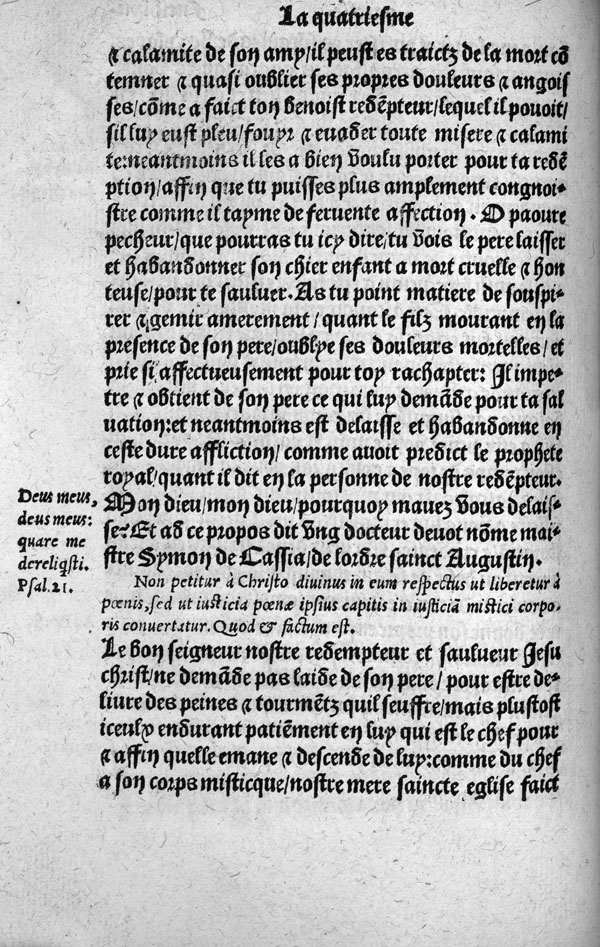 La quatriesme
⁊ calamite de son amy/il peust es traictz de la mort cõ
temner ⁊ quasi oublier ses propres douleurs ⁊ angois
ses/cõme a faict ton benoist redẽpteur/lequel il pouoit/
sil luy eust pleu/fouyr ⁊ euader toute misere ⁊ calami
te:neantmoins il les a bien voulu porter pour ta redẽ
ption/affin que tu puisses plus amplement congnoi-
stre comme il tayme de feruente affection. O paoure
pecheur/que pourras tu icy dire/tu vois le pere laisser
et habandonner son chier enfant a mort cruelle ⁊ hon
teuse/pour te sauluer. As tu point matiere de souspi-
rer ⁊ gemir amerement/quant le filz mourant en la
presence de son pere/oublye ses douleurs mortelles/et
prie si affectueusement pour toy rachapter: Il impe-
tre ⁊ obtient de son pere ce qui luy demãde pour ta sal
uation:et neantmoins est delaisse et habandonne en
ceste dure affliction/comme auoit predict le prophete
royal/quant il dit en la personne de nostre redẽpteur.
Mon dieu/mon dieu/pourquoy mauez vous delais-
se? Et ad ce propos dit vng docteur deuot nõme mai-
stre Symon de Cassia/de lordre sainct Augustin.
Deus meus,
deus meus:
quare me
dereliq̃sti.
Psal.21.
Non petitur à Christo diuinus in eum respectus ut liberetur à
pœnis, sed ut iusticia pœnæ ipsius capitis in iusticiã mistici corpo-
ris conuertatur. Quod & factum est.
Le bon seigneur nostre redempteur et saulueur Jesu
christ/ne demãde pas laide de son pere/pour estre de-
liure des peines ⁊ tourmẽtz quil seuffre/mais plustost
iceulx endurant patiẽment en luy qui est le chef pour
⁊ affin quelle emane ⁊ descende de luy:comme du chef
a son corps misticque/nostre mere saincte eglise faict